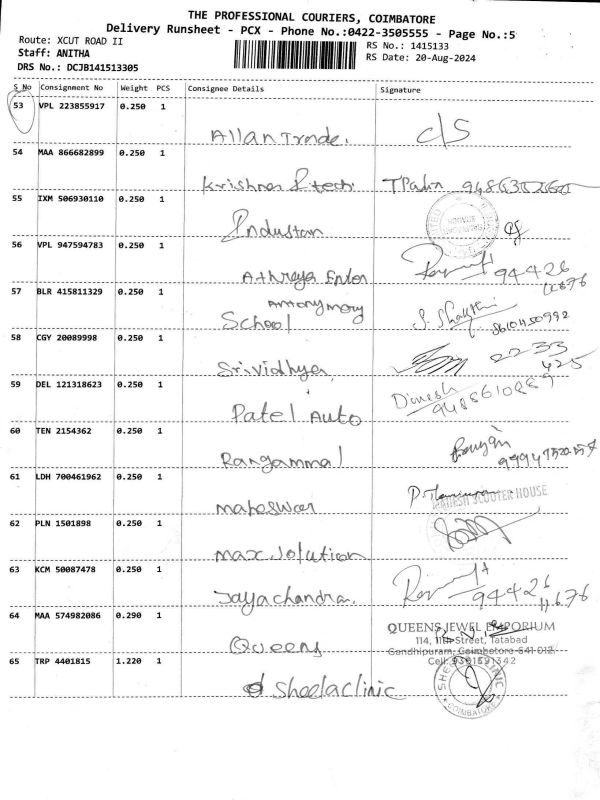 THE PROFESSIONAL COURIERS, COIMBATORE
Delivery Runsheet - PCX - Phone No.:0422-3505555 - Page No.:5
Route: XCUT ROAD II
RS No.: 1415133
Staff: ANITHA
RS Date: 20-Aug-2024
DRS No.: DCJB141513305
S No Consignment No Weight PCS Consignee Details Signature
53 VPL 223855917 0.250 1
Allan Trade. c/s
54 MAA 866682899 0.250 1
Krishna & tech
55 IXM 506930110 0.250 1
Industan
56 VPL 947594783 0.250 1
Athreya Enter 94426
11676
57 BLR 415811329 0.250 1
Antony mary
School S. Shakthi
8610450992
58 CGY 20089998 0.250 1
Srividhya 2233
425
59 DEL 121318623 0.250 1 Dinesh
Patel Auto
60 TEN 2154362 0.250 1
Rangammal
61 LDH 700461962 0.250 1
maheswar SCOOTER HOUSE
62 PLN 1501898 0.250 1
max solution
63 KCM 50087478 0.250 1
Jayachandra. 94426
11676
64 MAA 574982086 0.290 1
QUEENS JEWEL EMPORIUM
Queens 114, 11th Street, Tatabad
Gandhipuram, Coimbatore-641 012.
65 TRP 4401815 1.220 1
Cell: 9361591342
Sheela clinic
SHEELA CLINIC
COIMBATORE